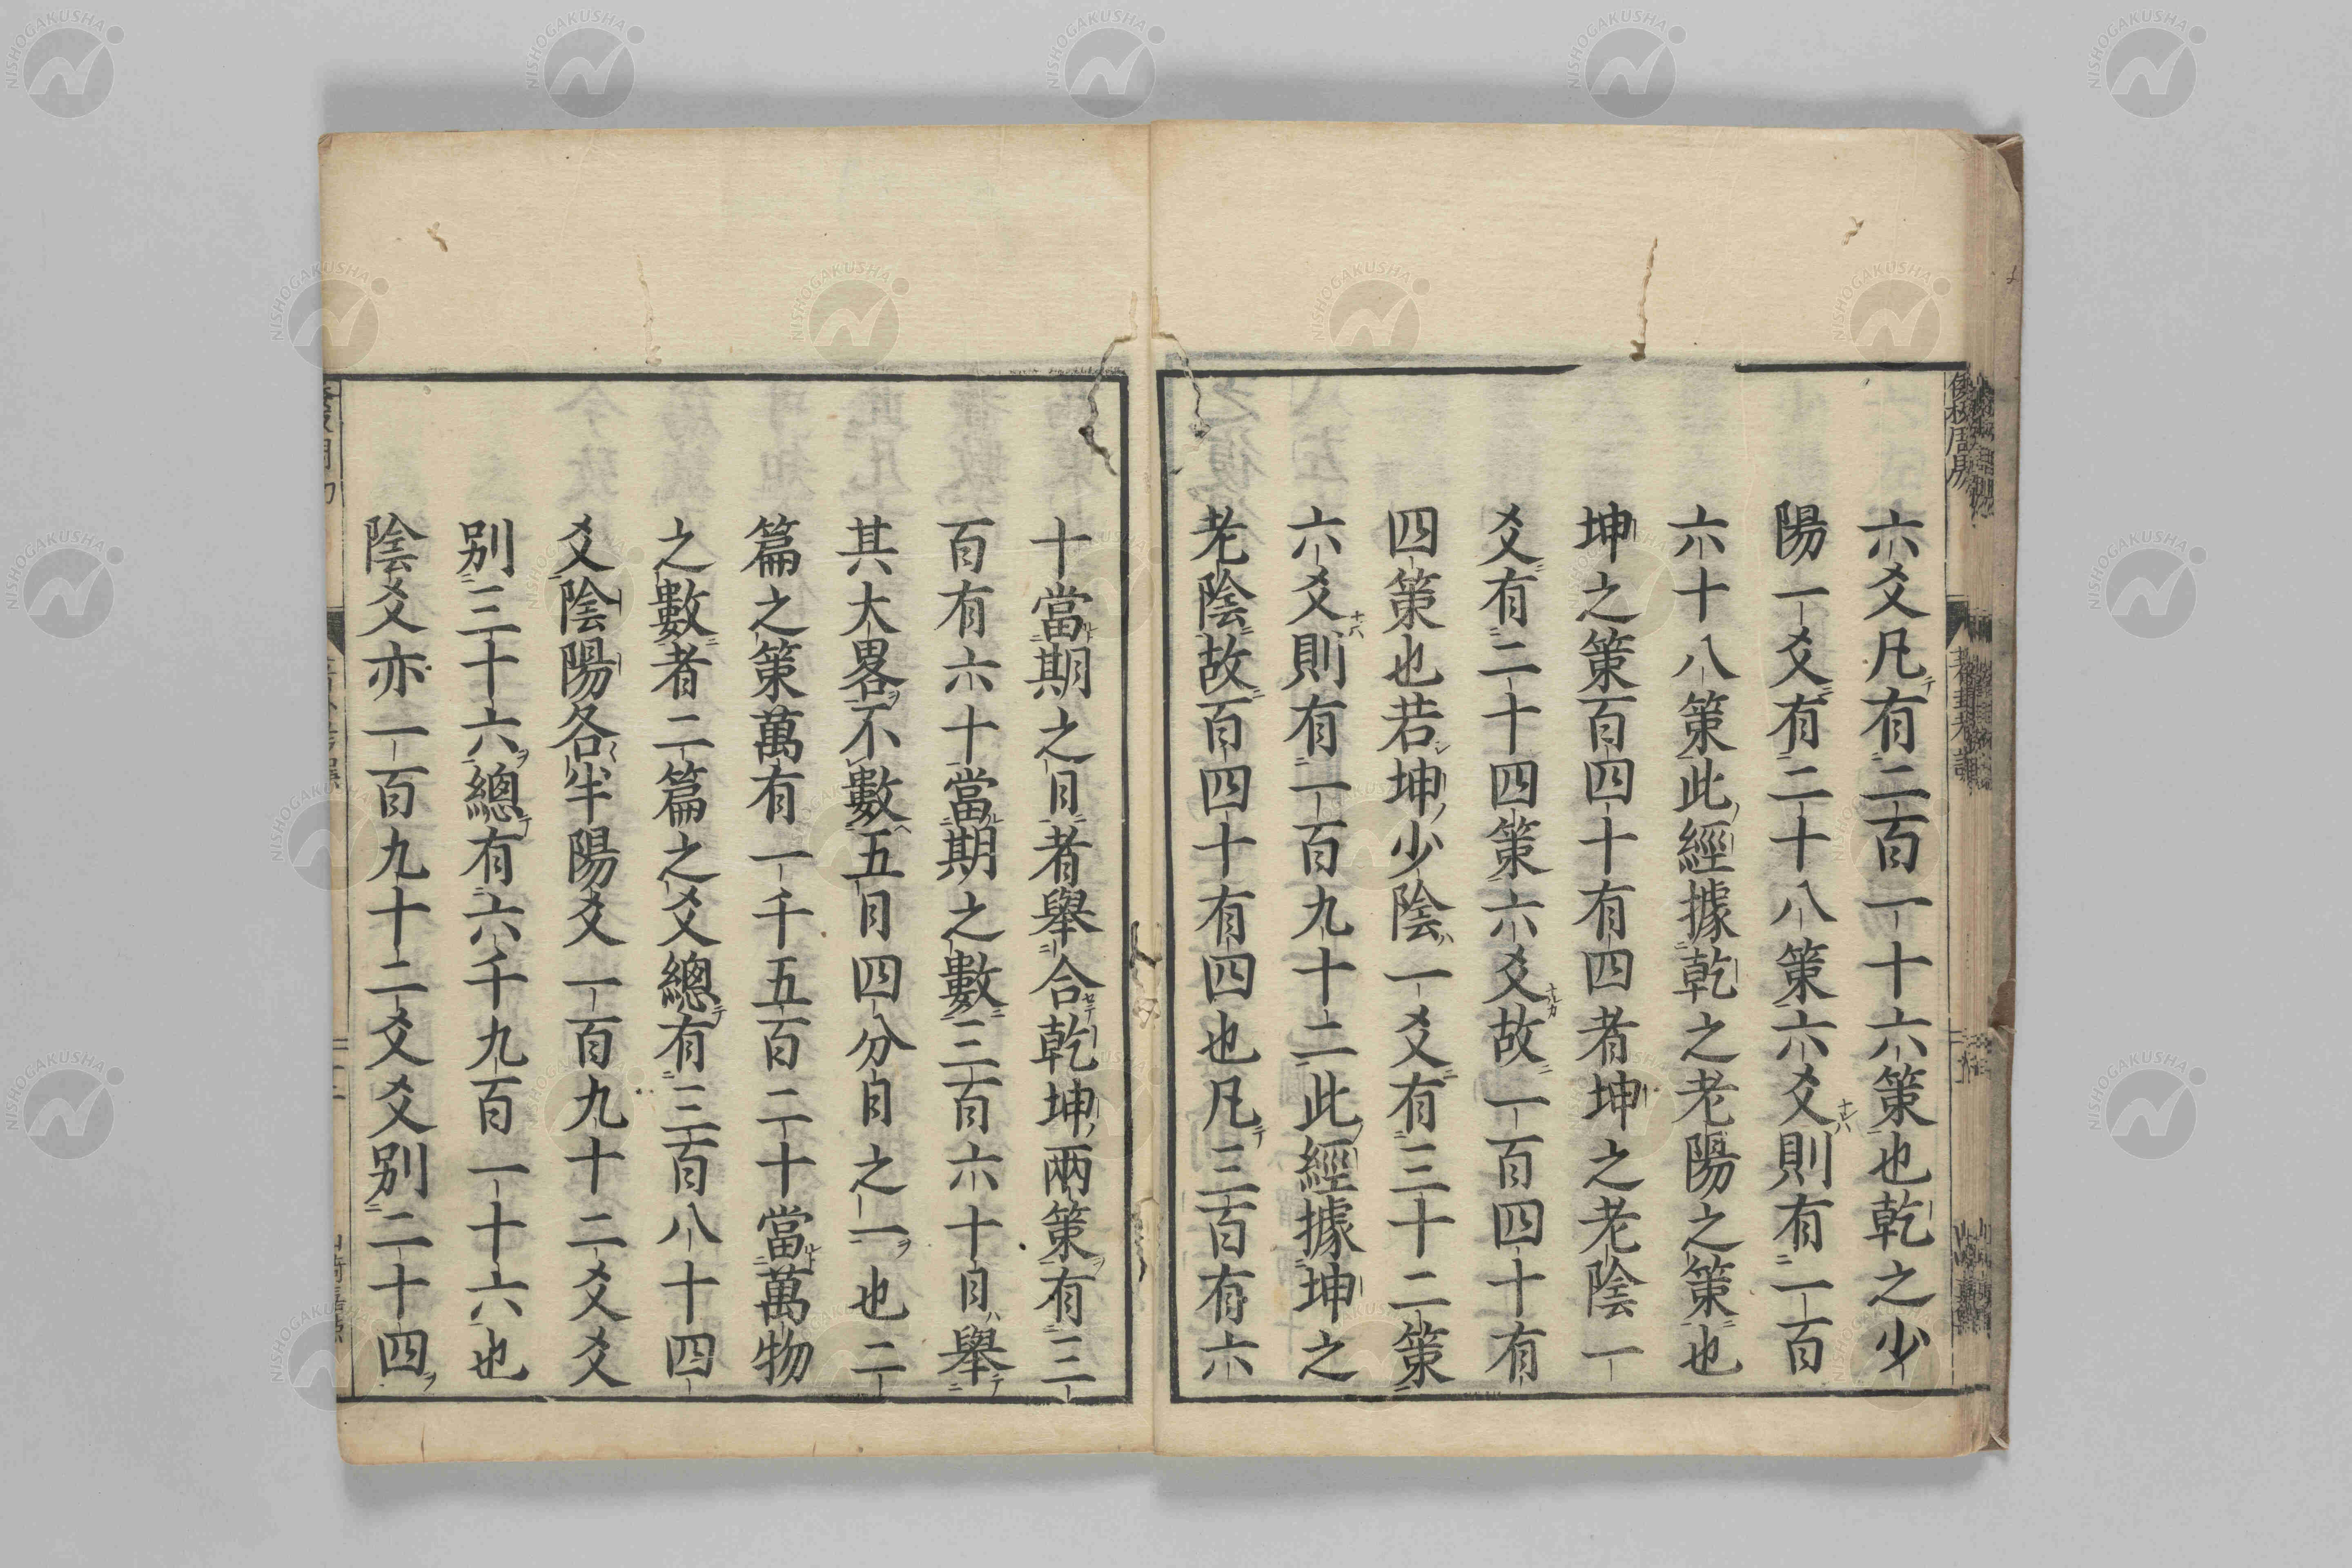 六爻凡有二百一十六策也乾之少
陽一爻有二十八策六爻則有一百
六十八策此經據乾之老陽之策也
坤之策百四十有四者坤之老陰一
爻有二十四策六爻故一百四十有
四策也若坤少陰一爻有三十二策
六爻則有一百九十二此經據坤之
老陰故百四十有四也凡三百有六
十當期之日者舉合乾坤兩策有三
百有六十當期之數三百六十日舉
其大畧不數五日四分日之一也二
篇之策萬有一千五百二十當萬物
之數者二篇之爻總有三百八十四
爻陰陽各半陽爻一百九十二爻爻
別三十六總有六千九百一十六也
陰爻亦一百九十二爻爻別二十四
NISHOGAKUSHA